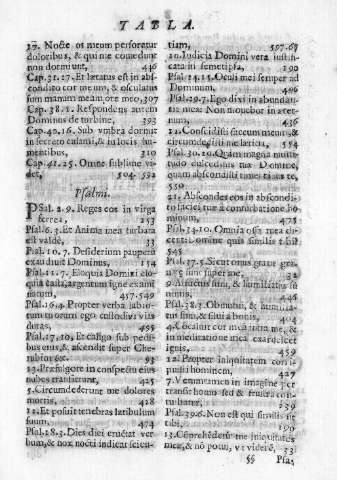 TABLA.
17. Nocte os meum perforatur
doloribus, & qui me comedunt
non dormiunt, 446
Cap. 31. 27. Et lætatus est in abs-
condito cor meum, & osculatus
sum manum meam ore meo, 307
Cap. 38. 1. Respondens autem
Dominus de turbine, 393
Cap. 40. 16. Sub umbra dormit
in secreto calami, & in locis hu-
mentibus, 310
Cap. 41. 25. Omne sublime vi-
det, 504. 592
Psalmi.
PSal. 2. 9. Reges eos in virga
ferrea, 253
Psal. 6. 3. Et Anima mea turbata
est valdè, 33
Psal. 10. 7. Desiderium pauperū
exaudivit Dominus, 154
Psal. 11. 7. Eloquia Domini elo-
quia casta, argentum igne exami
natum, 457. 549
Psal. 16. 4. Propter verba labio-
rum tuorum ego custodivi vias
duras, 495
Psal. 17. 10. Et caligo sub pedi-
bus eius, & ascendit super Che-
rubin &c. 93
13. Præfulgore in conspectu eius
nubes transierunt, 425
5. Circumdederunt me dolores
mortis, 428
12. Et posuit tenebras latibulum
suum, 474
Psal. 18. 3. Dies diei eructat ver
bum, & nox nocti indicat scien-
tiam, 597. 67
10. Iudicia Domini vera iustifi-
cata in semetipsa, 190
Psal. 24. 15. Oculi mei semper ad
Dominum, 406
Psal. 29. 7. Ego dixi in abundan-
tia mea: Non movebor in æter-
num, 436
12. Conscidisti saccum meum, &
circumdedisti me lætitia, 554
Psal. 30. 20. Quàm magna multi-
tudo dulcedinis tuæ Domine,
quam abscondisti timentibus te,
550
21. Abscondes eos in abscondi-
to faciei tuæ à conturbatione ho-
minum, 475
Psal. 34. 10. Omnia ossa mea di-
cent: Domine quis similis tibi?
545
Psal. 37. 5. Sicut onus grave gra-
væ sunt super me, 32
9. Afflictus sum, & humiliatus su
nimis, 446
Psal. 38. 3. Obmutui, & humilia-
tus sum, & silui à bonis, 404
4. Concaluit cor meum intra me, &
in meditatione mea exardescet
ignis, 439
12. Propter iniquitatem corri-
puisti hominem, 427
7. Verumtamen in imagine per
transit homo sed & frustra con-
turbatur, 459
Psal. 39. 6. Non est qui similis sit
tibi, 530
13. Cōprehēderūt me iniquitates
meæ, & nō potui, vt viderē, 33
§§ Psal.